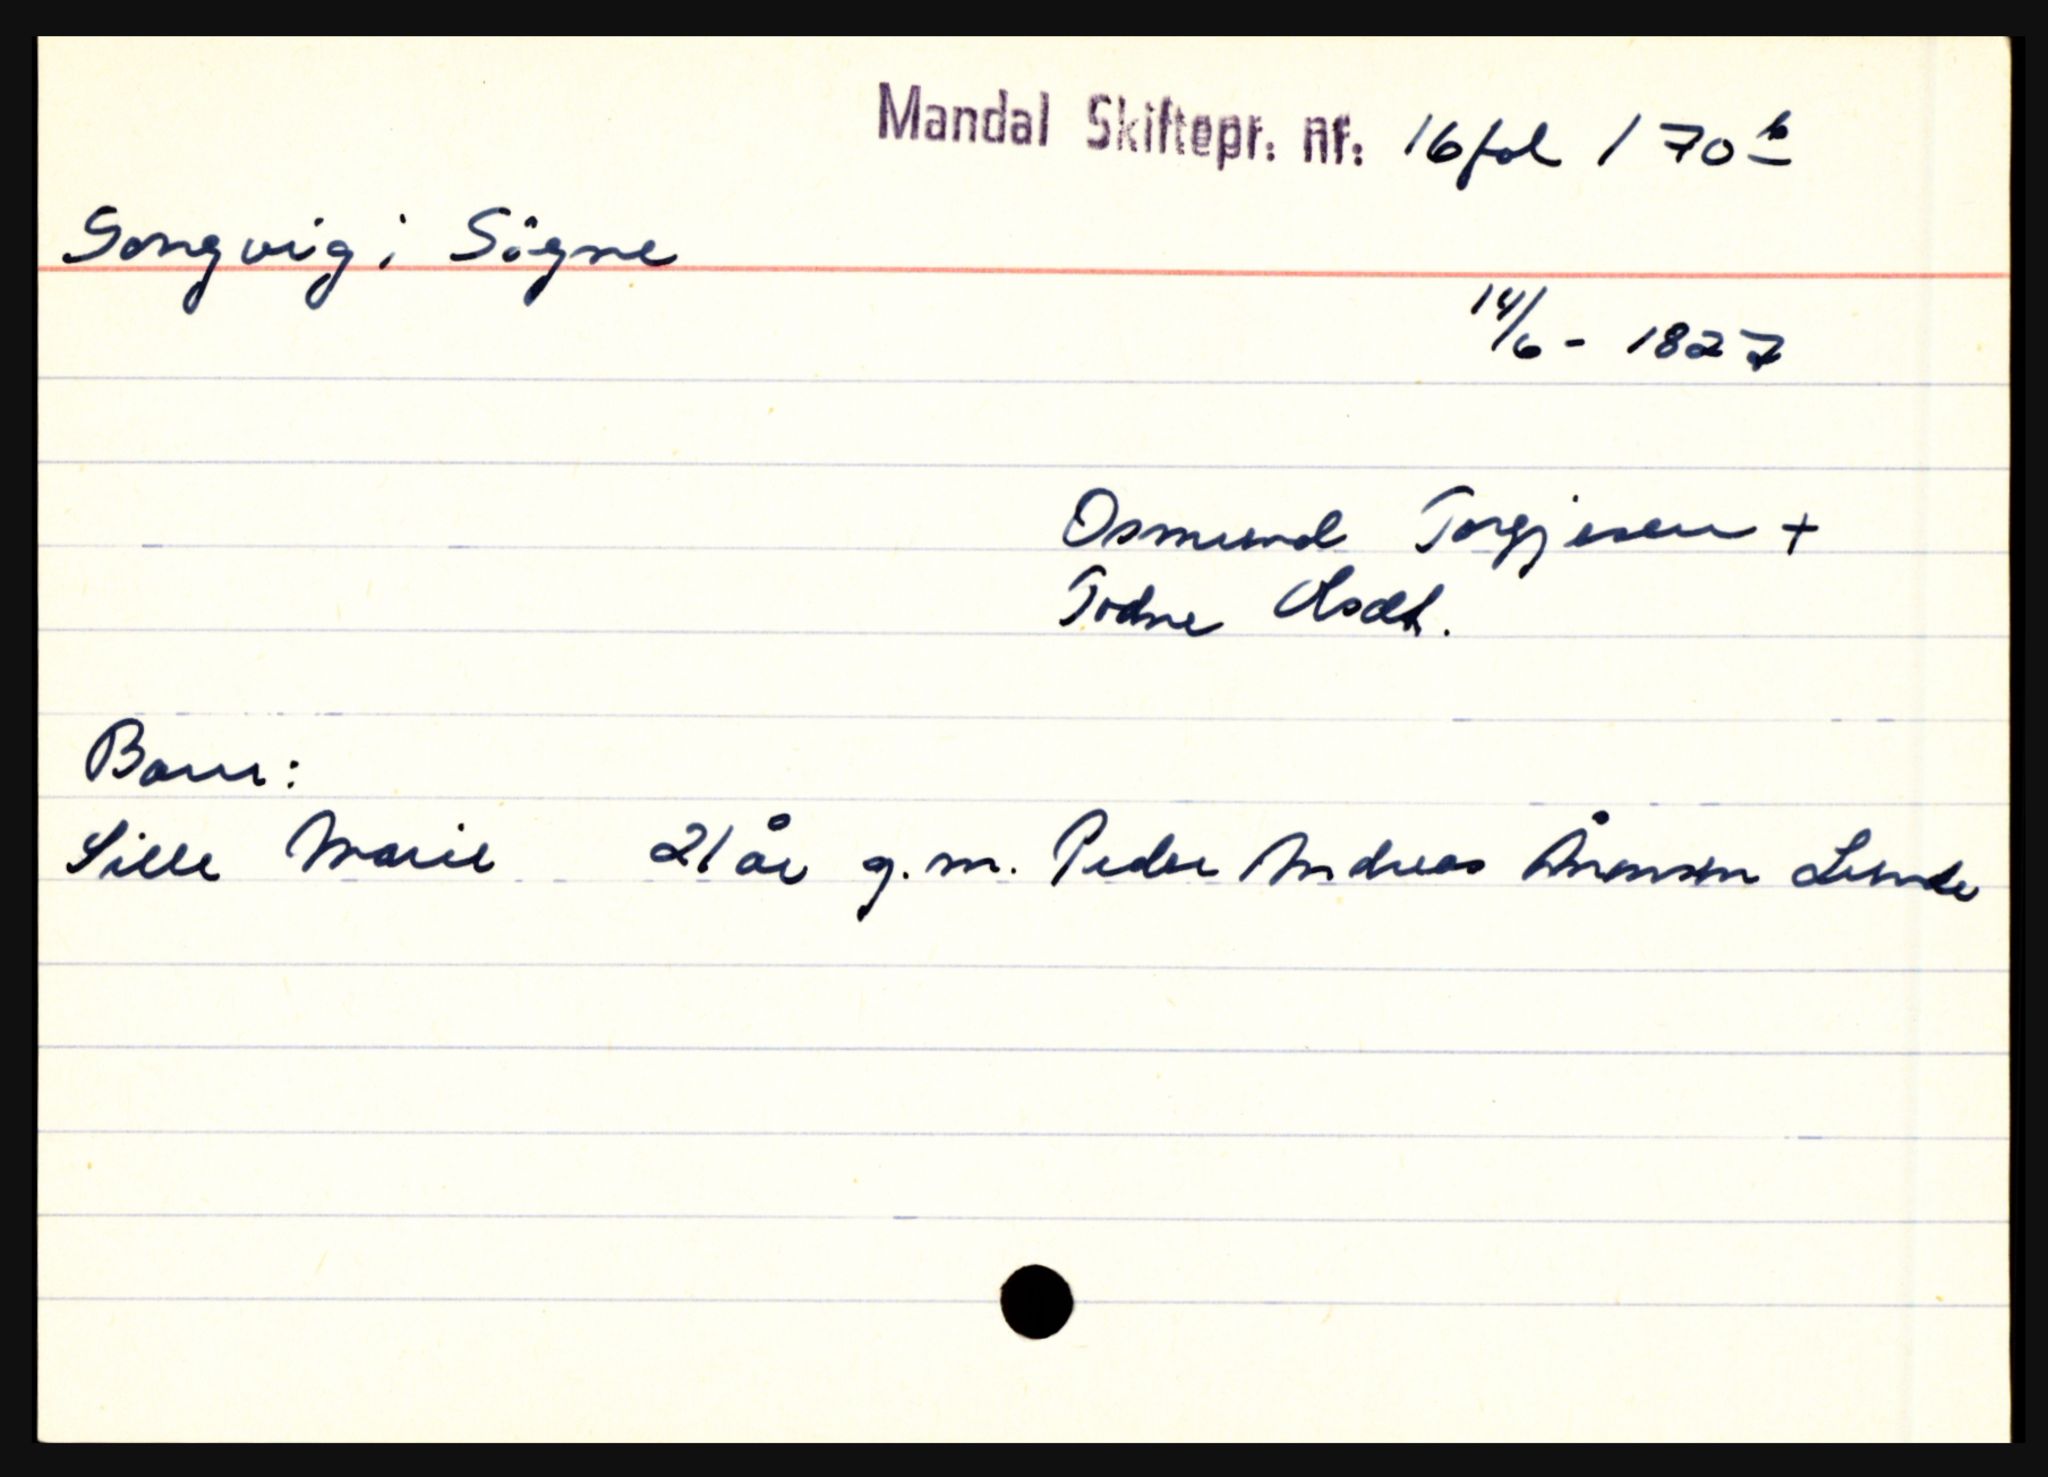 Mandal Skiftepr. nr: 16 fol 170 b
Songvig i Sögne
14/6 - 1827
Osmund Torgjesen +
Todne Olsdt.
Barn:
Sille Marie 21 år g.m. Peder Andreas Ånensen Lunde